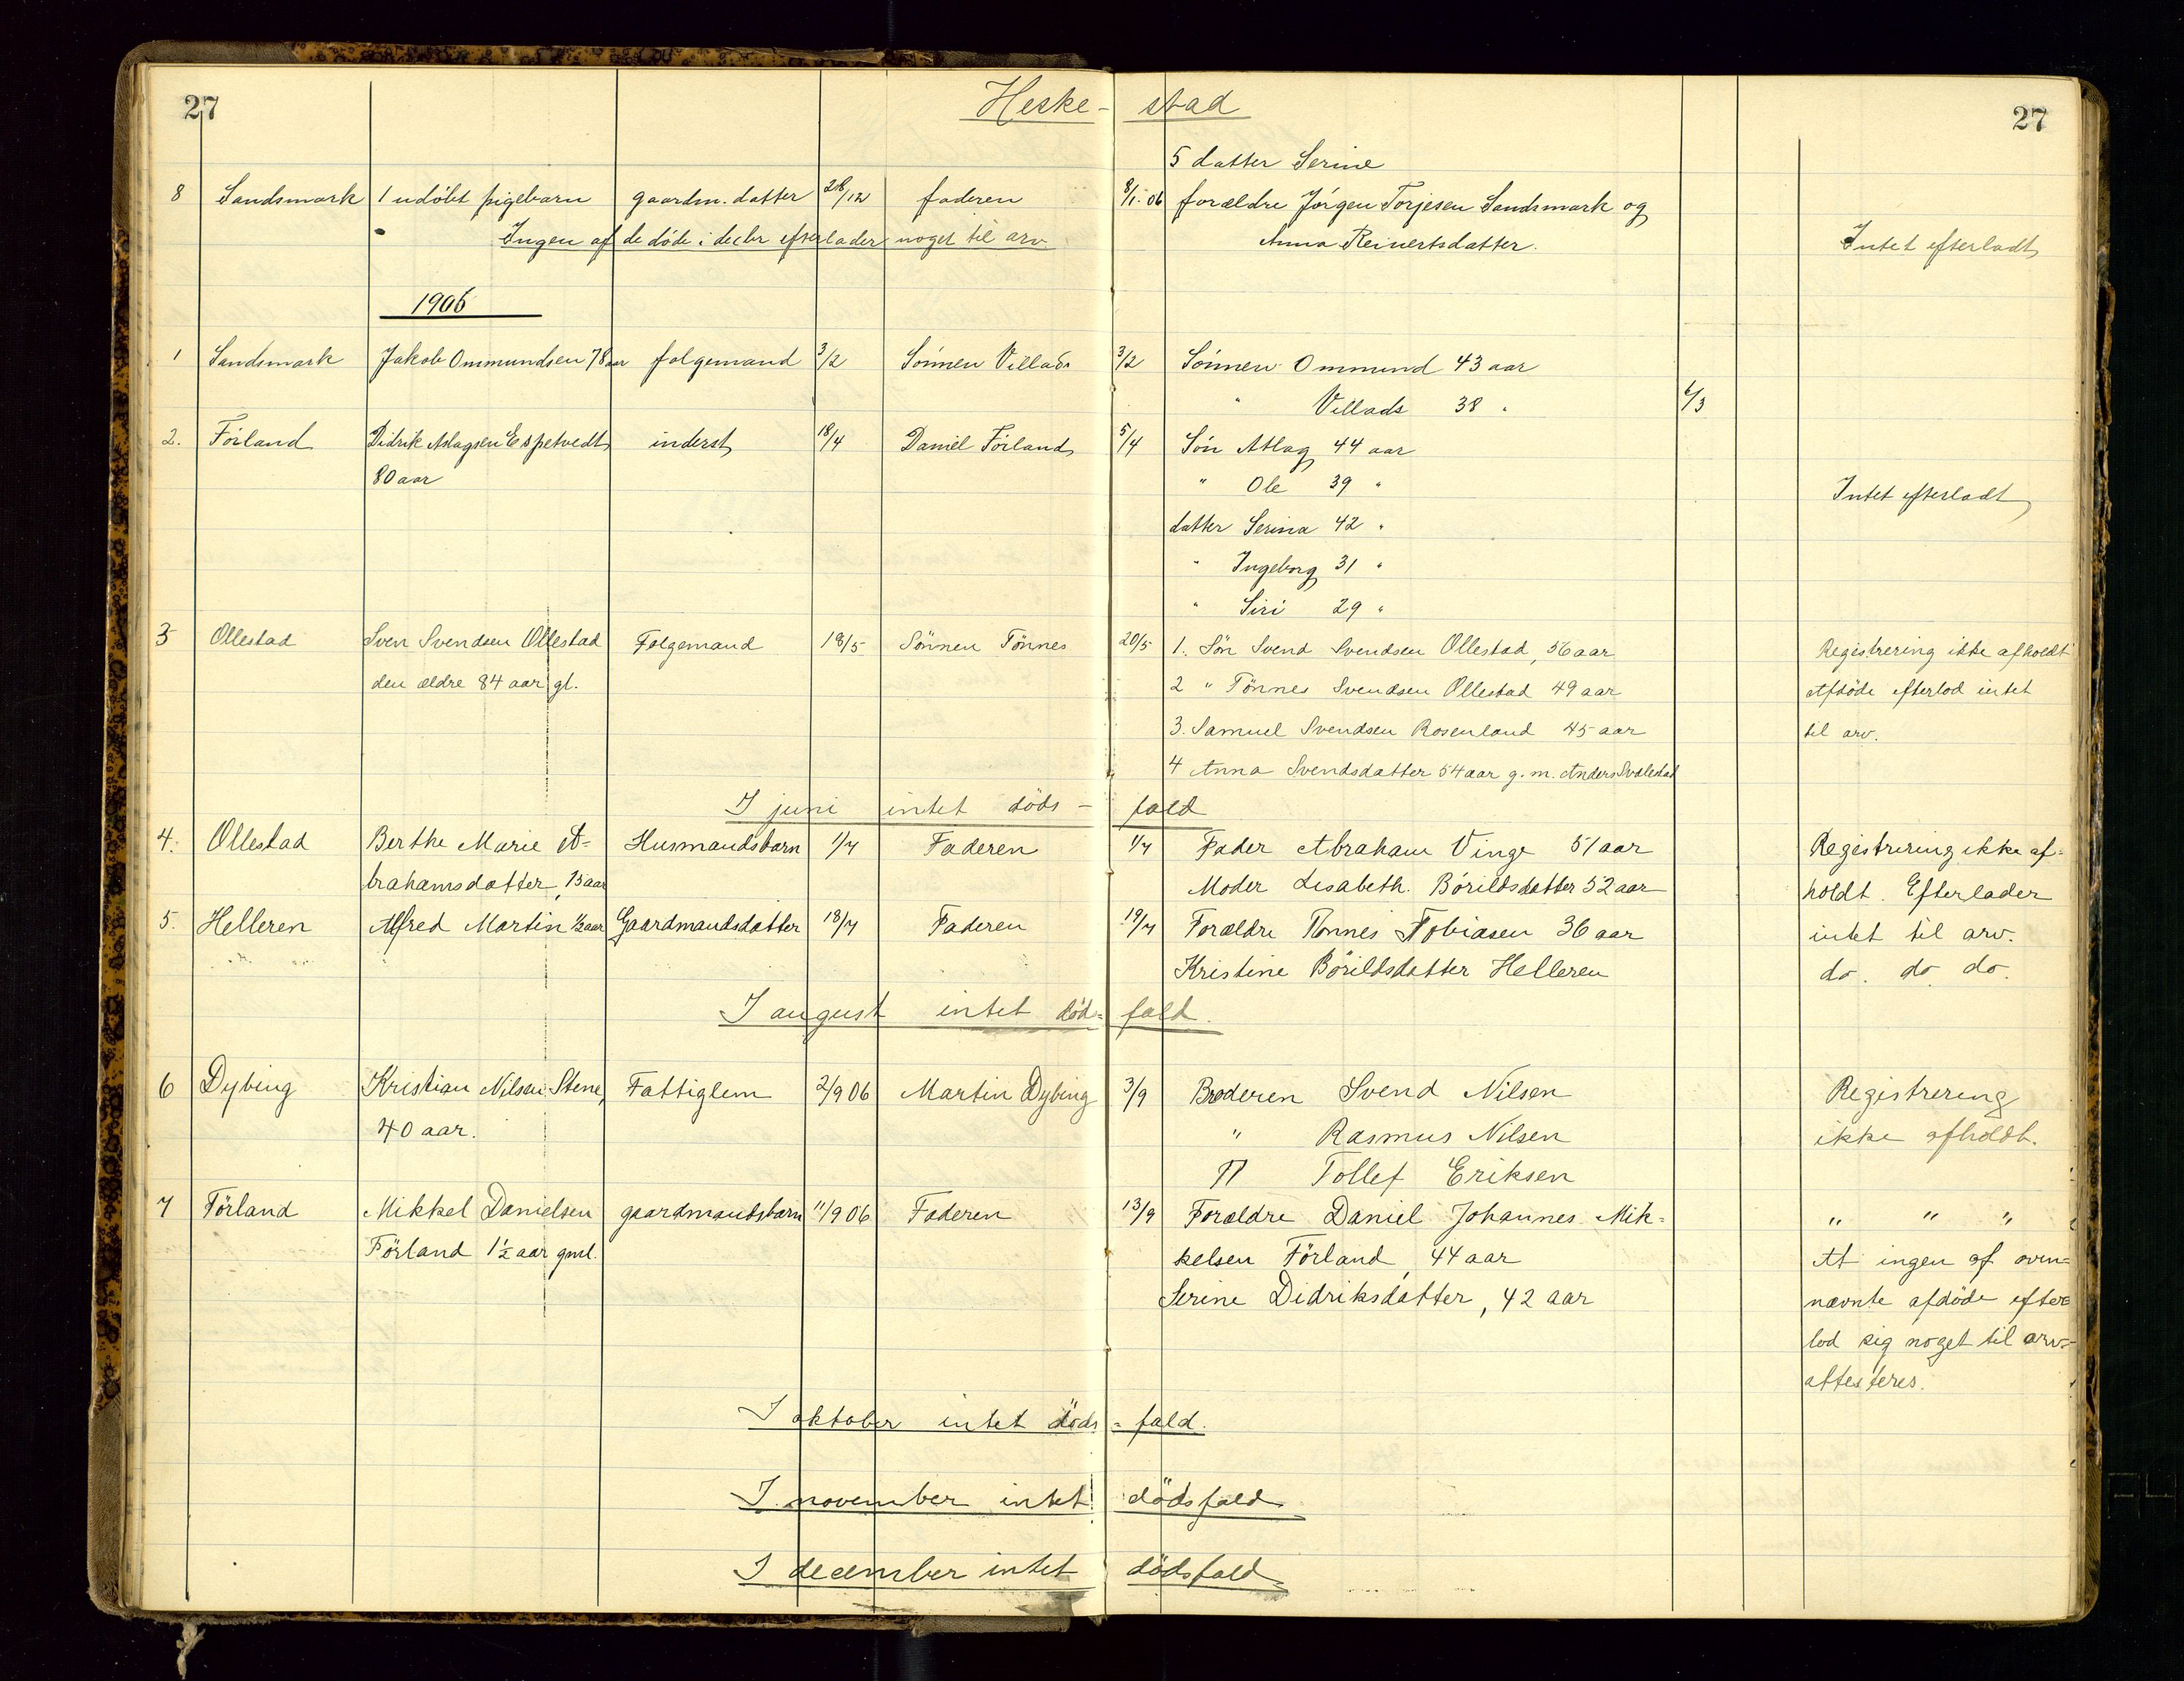 27
Heske- stad
27
5 datter Serine
8 Sandsmark 1 udöbt pigebarn gaardm. datter 28/12 faderen 8/1-06 forældre Jörgen Torjesen Sandsmark og
Ingen af de döde i decbr efterlader noget til arv Anna Reinertsdatter. Intet efterladt
1906
1 Sandsmark Jakob Ommundsen 78 aar folgemand 3/2 Sönnen Villads 3/2 Sönnen Ommund 43 aar
" Villads 38 " 6/3
2. Förland Didrik Aslagsen Espetvedt inderst 18/4 Daniel Förland 5/4 Sön Atlag 44 aar
80 aar " Ole 39 " Intet efterladt
datter Serina 42 "
" Ingeborg 31 "
" Siri 29 "
3 Ollestad Sven Svendsen Ollestad Folgemand 18/5 Sönnen Tönnes 20/5 1. Sön Svend Svendsen Ollestad, 56 aar Registrering ikke afholdt
den ældre 84 aar gl. 2 " Tönnes Svendsen Ollestad 49 aar Afdöde efterlod intet
3. Samuel Svendsen Rosenland 45 aar til arv.
4 Anna Svendsdatter 54 aar g. m. Anders Svalestad
I juni intet döds- fald
4. Ollestad Berthe Marie A= Husmandsbarn 1/7 Faderen 1/7 Fader Abraham Vinge 51 aar Registrering ikke af=
brahamsdatter, 15 aar Moder Lisabeth. Börildsdatter 52 aar holdt. Efterlader
5. Helleren Alfred Martin 1/2 aar Gaardmandsdatter 18/7 Faderen 19/7 Forældre Tönnes Tobiasen 36 aar intet til arv.
Kristine Börildsdatter Helleren do. do do.
I august intet död= fald.
6 Dybing Kristian Nilsen Stene, Fattiglem 2/9 06 Martin Dybing 3/9 Broderen Svend Nilsen Registrering
40 aar. " Rasmus Nilsen ikke afholdt.
" Tollef Eriksen
7 Förland Mikkel Danielsen gaardmandsbarn 11/9 06 Faderen 13/9 Forældre Daniel Johannes Mik= " " "
Förland 1 1/2 aar gml. kelsen Förland, 44 aar At ingen af oven=
Serine Didriksdatter, 42 aar nævnte afdöde efter
lod sig noget til arv-
attesteres.
I oktober intet döds = fald.
I november intet dödsfald
I december intet dödsfald